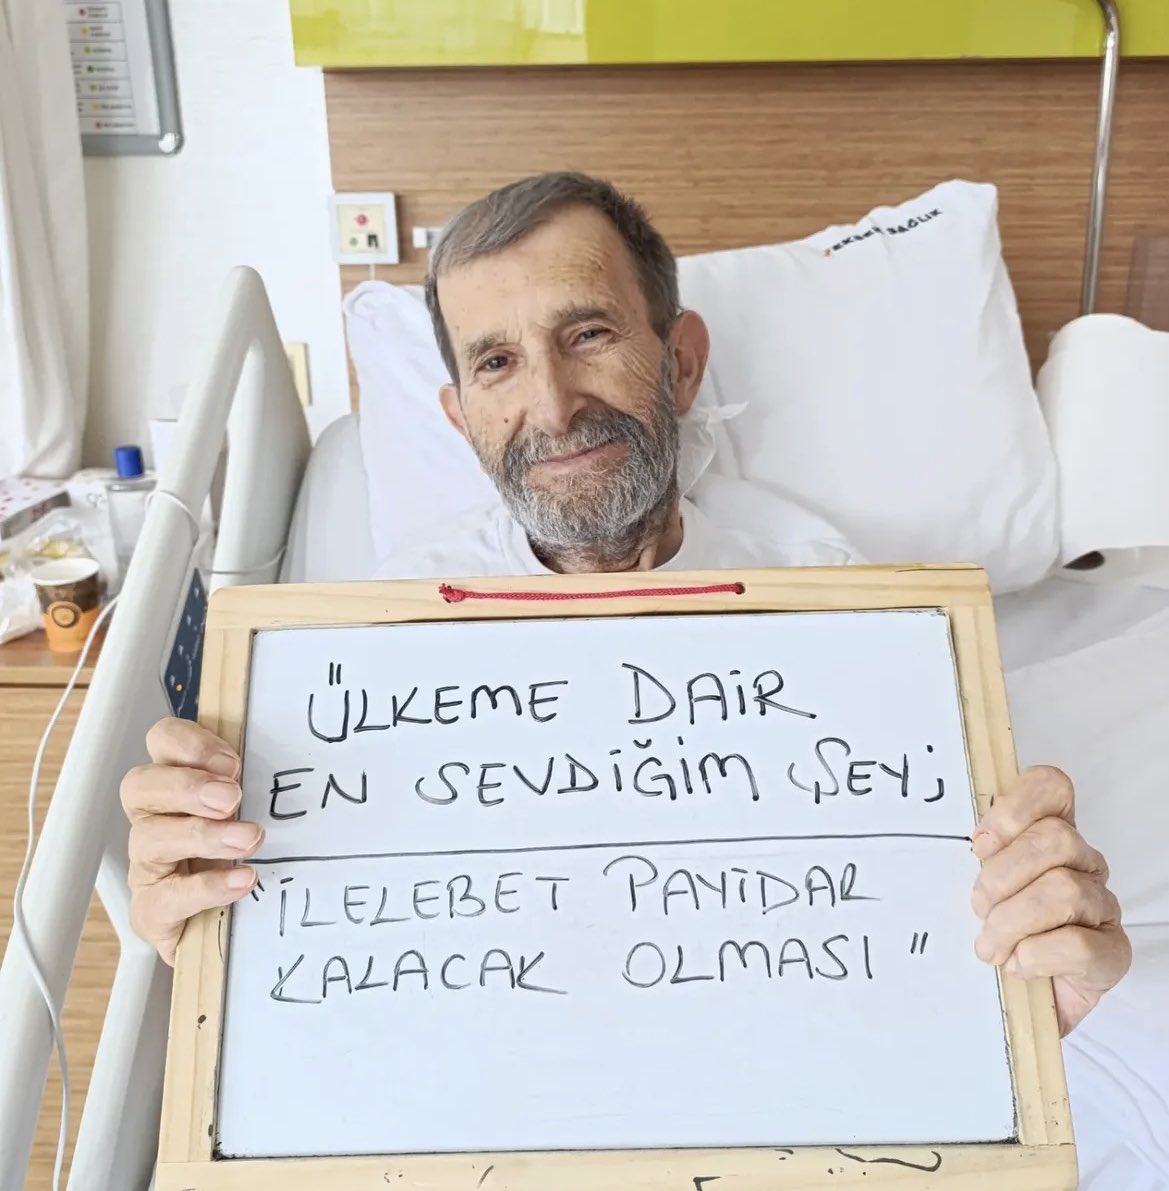 SAĞLIK
ÜLKEME DAİR
EN SEVDİĞİM ŞEY;
"İLELEBET PAYİDAR
KALACAK OLMASI"